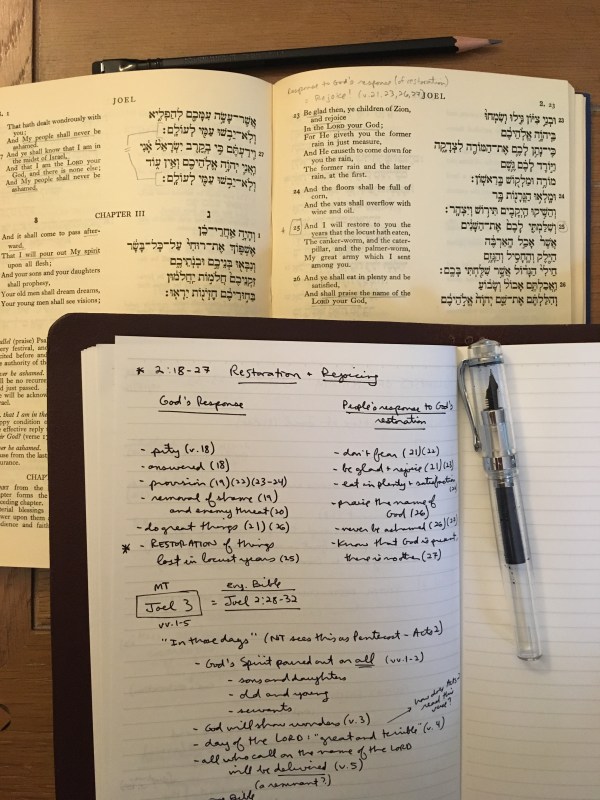 JOEL
That hath dealt wondrously with
you;
And My people shall never be
ashamed.
And ye shall know that I am in
the midst of Israel,
And that I am the LORD your
God, and there is none else;
And My people shall never be
ashamed.
אֲשֶׁר־עָשָׂה עִמָּכֶם לְהַפְלִיא
וְלֹא־יֵבֹשׁוּ עַמִּי לְעוֹלָם׃
27 וִידַעְתֶּם כִּי בְקֶרֶב יִשְׂרָאֵל אָנִי
וַאֲנִי יְהוָה אֱלֹהֵיכֶם וְאֵין עוֹד
וְלֹא־יֵבֹשׁוּ עַמִּי לְעוֹלָם׃
3
CHAPTER III
ג
And it shall come to pass after-
ward,
That I will pour out My spirit
upon all flesh;
And your sons and your daughters
shall prophesy,
Your old men shall dream dreams,
Your young men shall see visions;
וְהָיָה אַחֲרֵי־כֵן
אֶשְׁפּוֹךְ אֶת־רוּחִי עַל־כָּל־בָּשָׂר
וְנִבְּאוּ בְּנֵיכֶם וּבְנֹתֵיכֶם
זִקְנֵיכֶם חֲלֹמוֹת יַחֲלֹמוּן
בַּחוּרֵיכֶם חֶזְיֹנוֹת יִרְאוּ׃
Response to God's response (of restoration)
: Rejoice! (v.21,23,26,27)
JOEL
2. 23
23 Be glad then, ye children of Zion,
and rejoice
In the LORD your God;
For He giveth you the former
rain in just measure,
And He causeth to come down for
you the rain,
The former rain and the latter
rain, at the first.
24 And the floors shall be full of
corn,
And the vats shall overflow with
wine and oil.
25 And I will restore to you the
years that the locust hath eaten,
The canker-worm, and the cater-
pillar, and the palmer-worm,
My great army which I sent
among you.
26 And ye shall eat in plenty and be
satisfied,
And shall praise the name of the
LORD your God,
23 וּבְנֵי צִיּוֹן גִּילוּ וְשִׂמְחוּ
בַּיהוָה אֱלֹהֵיכֶם
כִּי־נָתַן לָכֶם אֶת־הַמּוֹרֶה לִצְדָקָה
וַיּוֹרֶד לָכֶם גֶּשֶׁם
מוֹרֶה וּמַלְקוֹשׁ בָּרִאשׁוֹן׃
24 וּמָלְאוּ הַגֳּרָנוֹת בָּר
וְהֵשִׁיקוּ הַיְקָבִים תִּירוֹשׁ וְיִצְהָר׃
25 וְשִׁלַּמְתִּי לָכֶם אֶת־הַשָּׁנִים
אֲשֶׁר אָכַל הָאַרְבֶּה
הַיֶּלֶק וְהֶחָסִיל וְהַגָּזָם
חֵילִי הַגָּדוֹל אֲשֶׁר שִׁלַּחְתִּי בָּכֶם׃
26 וַאֲכַלְתֶּם אָכוֹל וְשָׂבוֹעַ
וְהִלַּלְתֶּם אֶת־שֵׁם יְהוָה אֱלֹהֵיכֶם
* 2:18-27 Restoration + Rejoicing
God's Response
- pity (v.18)
- answered (18)
- provision (19)(22)(23-24)
- removal of shame (19)
and enemy threat (20)
- do great things (21)(26)
* - RESTORATION of things
lost in locust years (25)
People's response to God's
restoration
- don't fear (21)(22)
- be glad + rejoice (21)(23)
- eat in plenty + satisfaction
- praise the name of
God (26)
- never be ashamed (26)(27)
- Know that God is present,
there is no other (27)
MT
Joel 3
vv. 1-5
eng. Bible
= Joel 2:28-32
"In those days" (NT sees this as Pentecost - Acts 2)
- God's Spirit poured out on all (vv. 1-2)
- sons and daughters
- old and young
- servants
- God will show wonders (v. 3)
- day of the LORD: "great and terrible" (v. 4)
how does Acts 2
read this
verse?
- all who call on the name of the LORD
will be delivered (v. 5)
(a remnant?)